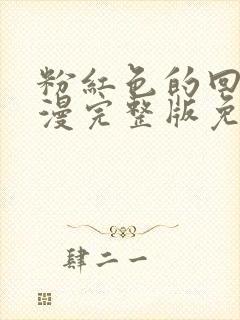 粉红色的回
漫完整版免
肆二一